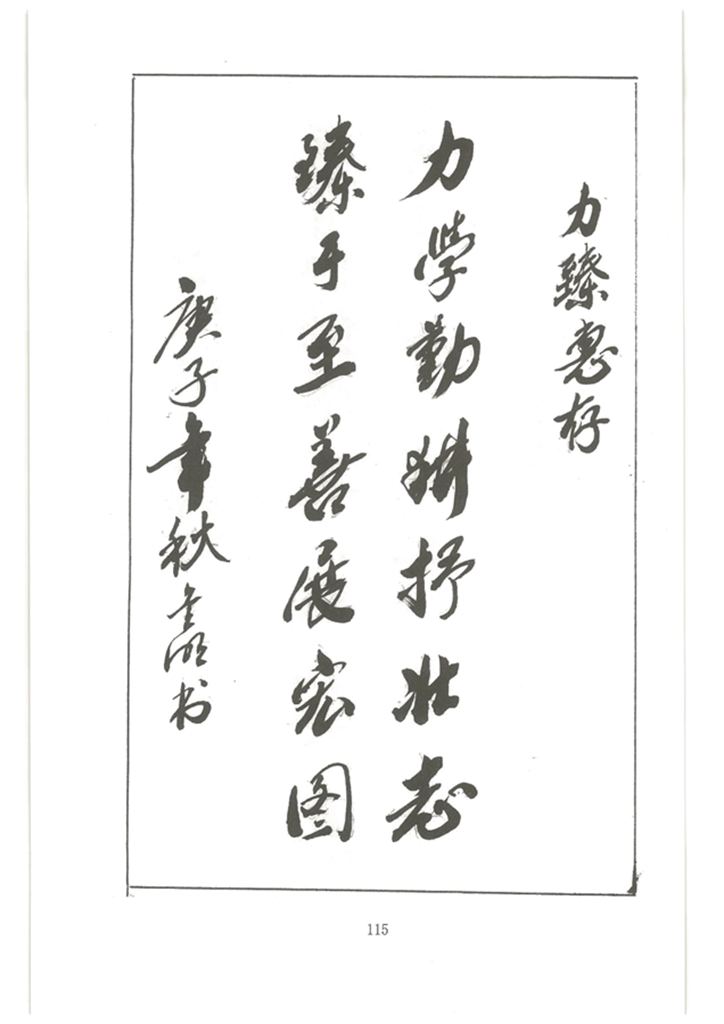 力臻惠存
力学勤耕抒壮志
臻于至善展宏图
庚子年秋金明书
115